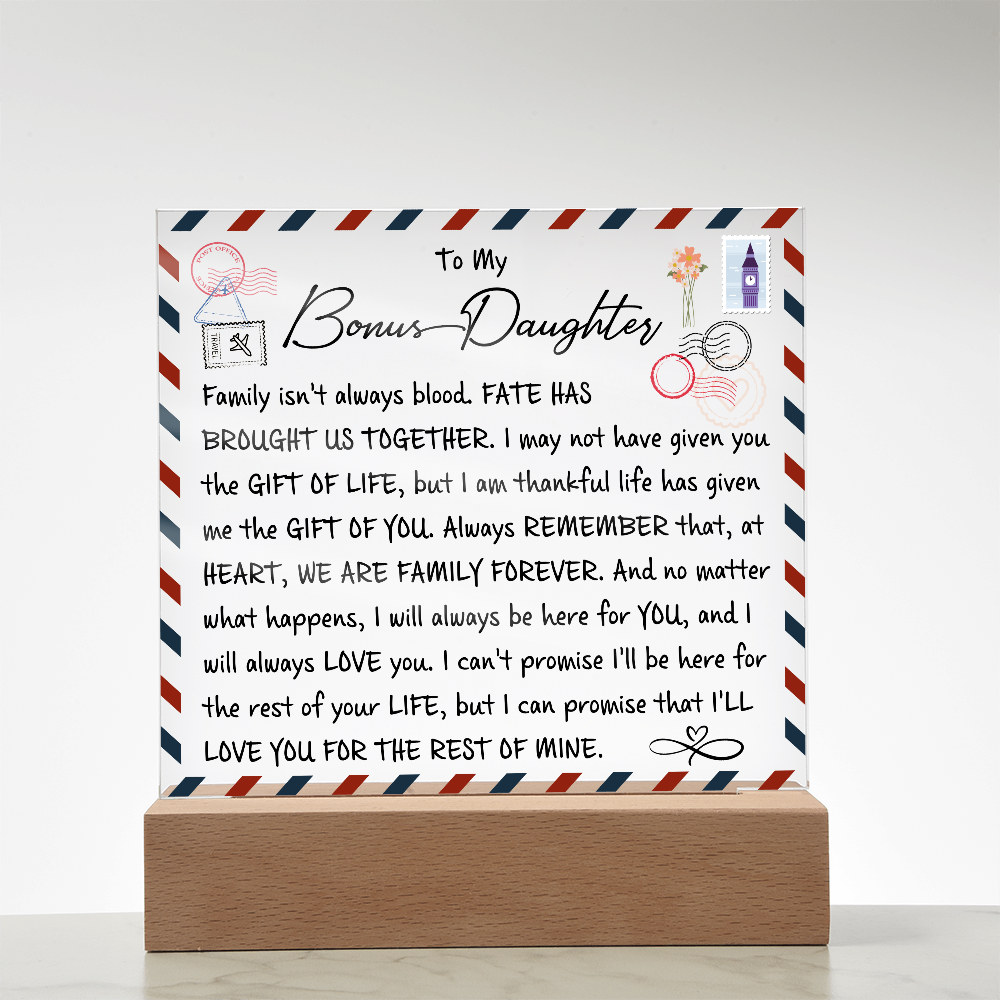 To My
Bonus Daughter
POST OFFICE
TRAVEL
Family isn't always blood. FATE HAS
BROUGHT US TOGETHER. I may not have given you
the GIFT OF LIFE, but I am thankful life has given
me the GIFT OF YOU. Always REMEMBER that, at
HEART, WE ARE FAMILY FOREVER. And no matter
what happens, I will always be here for YOU, and I
will always LOVE you. I can't promise I'll be here for
the rest of your LIFE, but I can promise that I'LL
LOVE YOU FOR THE REST OF MINE.